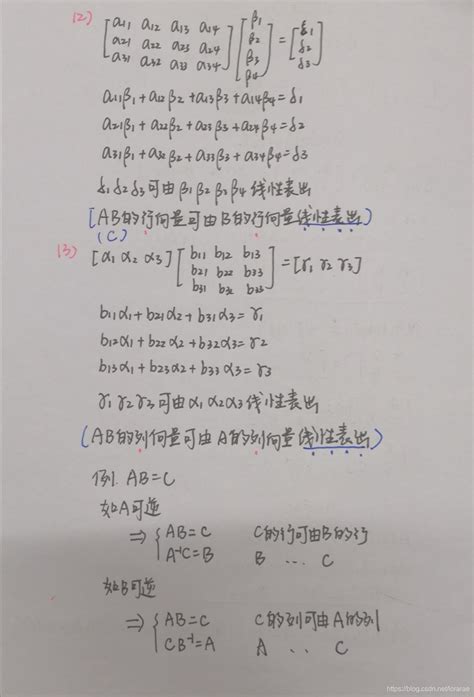 (2) [a11 a12 a13 a14 a21 a22 a23 a24 a31 a32 a33 a34] [β1 β2 β3 β4] = [δ1 δ2 δ3]
a11β1+a12β2+a13β3+a14β4=δ1
a21β1+a22β2+a23β3+a24β4=δ2
a31β1+a32β2+a33β3+a34β4=δ3
δ1 δ2 δ3 可由 β1 β2 β3 β4 线性表出
[AB的行向量可由B的行向量线性表出)
(C)
(3) [α1 α2 α3] [b11 b12 b13 b21 b22 b33 b31 b32 b33] = [γ1 γ2 γ3]
b11α1+b21α2+b31α3=γ1
b12α1+b22α2+b32α3=γ2
b13α1+b23α2+b33α3=γ3
γ1 γ2 γ3 可由 α1 α2 α3 线性表出
(AB的列向量可由A的列向量线性表出)
例. AB=C
如A可逆
⇒ { AB=C C的行可由B的行
A⁻¹C=B B ... C
如B可逆
⇒ { AB=C C的列可由A的列
CB⁻¹=A A ... C